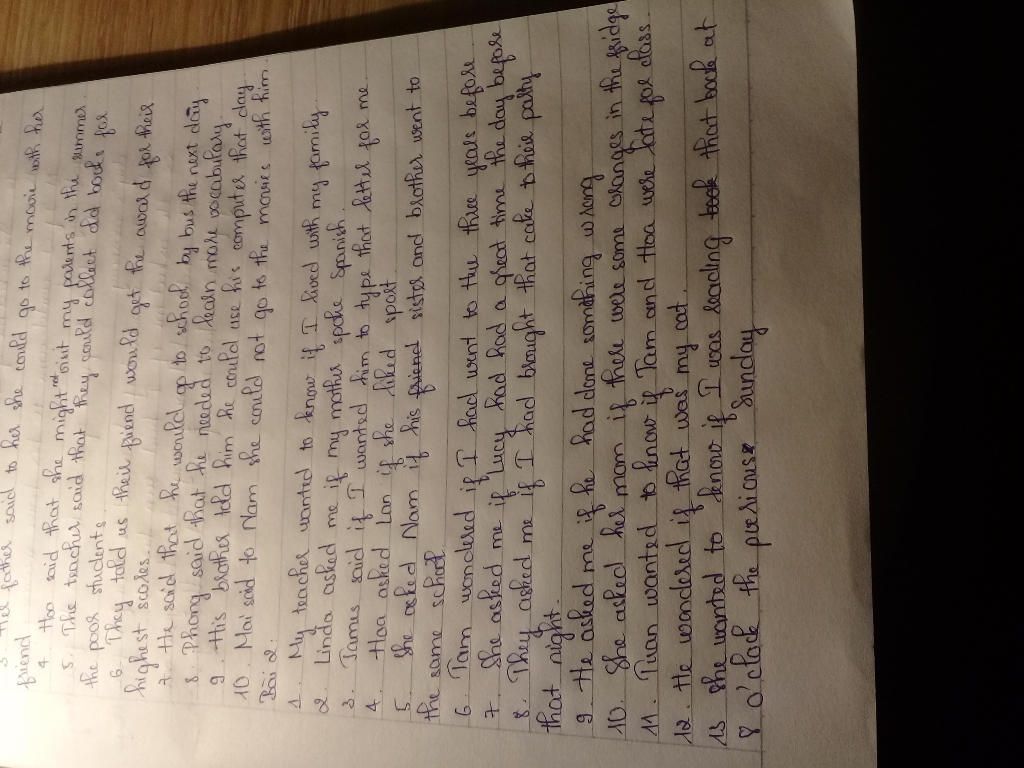 3. Her father said to her she could go to the movie with her
friend
4. Hoa said that she might visit my parents in the summer
5. The teacher said that they could collect old books for
the poor students.
6. They told us their friend would get the award for their
highest scores.
7. He said that he would go to school by bus the next day
8. Phong said that he needed to learn more vocabulary.
9. His brother told him he could use his computer that day
10. Mai said to Nam she could not go to the movie with him.
Bài 2:
1. My teacher wanted to know if I lived with my family
2. Linda asked me if my mother spoke Spanish.
3. James said if I wanted him to type that letter for me
4. Hoa asked Lan if she liked sport
5. She asked Nam if his friend sister and brother went to
the same school
6. Tam wondered if I had went to Hue three years before
7. She asked me if Lucy had had a great time the day before
8. They asked me if I had brought that cake to their party
that night.
9. He asked me if he had done something wrong
10. She asked her mom if there were some oranges in the fridge
11. Tuan wanted to know if Tam and Hoa were late for class
12. He wondered if that was my cat.
13 She wanted to know if I was reading book that book at
8 o'clock the previous Sunday